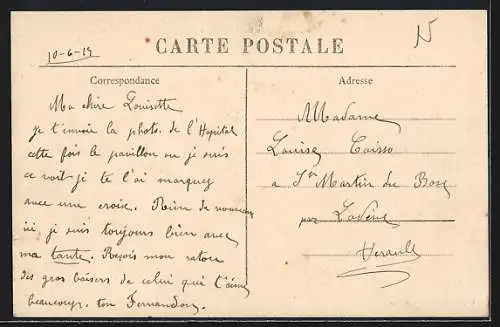 CARTE POSTALE
10-6-19
Correspondance
Ma chère Louisette
je t'envoie la photo. de l'Hopital
cette fois le pavillon ou je suis
ce voit je te l'ai marquez
avec une croix. Rien de nouveau
ici je suis toujours bien avec
ma tante. Reçois mon
des gros baisers de celui qui t'aime
beaucoup. ton Fernandou
Adresse
Madame
Louise Coisso
a St Martin du Bosc
par Lodève
Herault